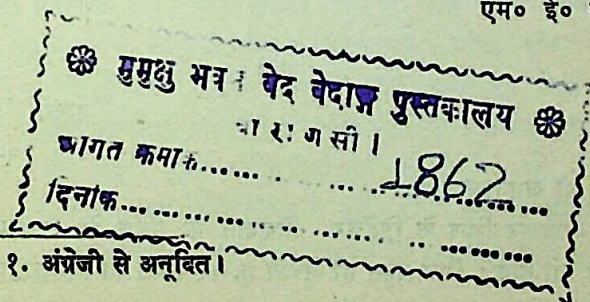 एम० ई०
मुमुक्षु भव वेद वेदाङ्ग पुस्तकालय
वाराणसी।
आगत क्रमांक...... 1862
दिनांक......
१. अंग्रेजी से अनूदित।